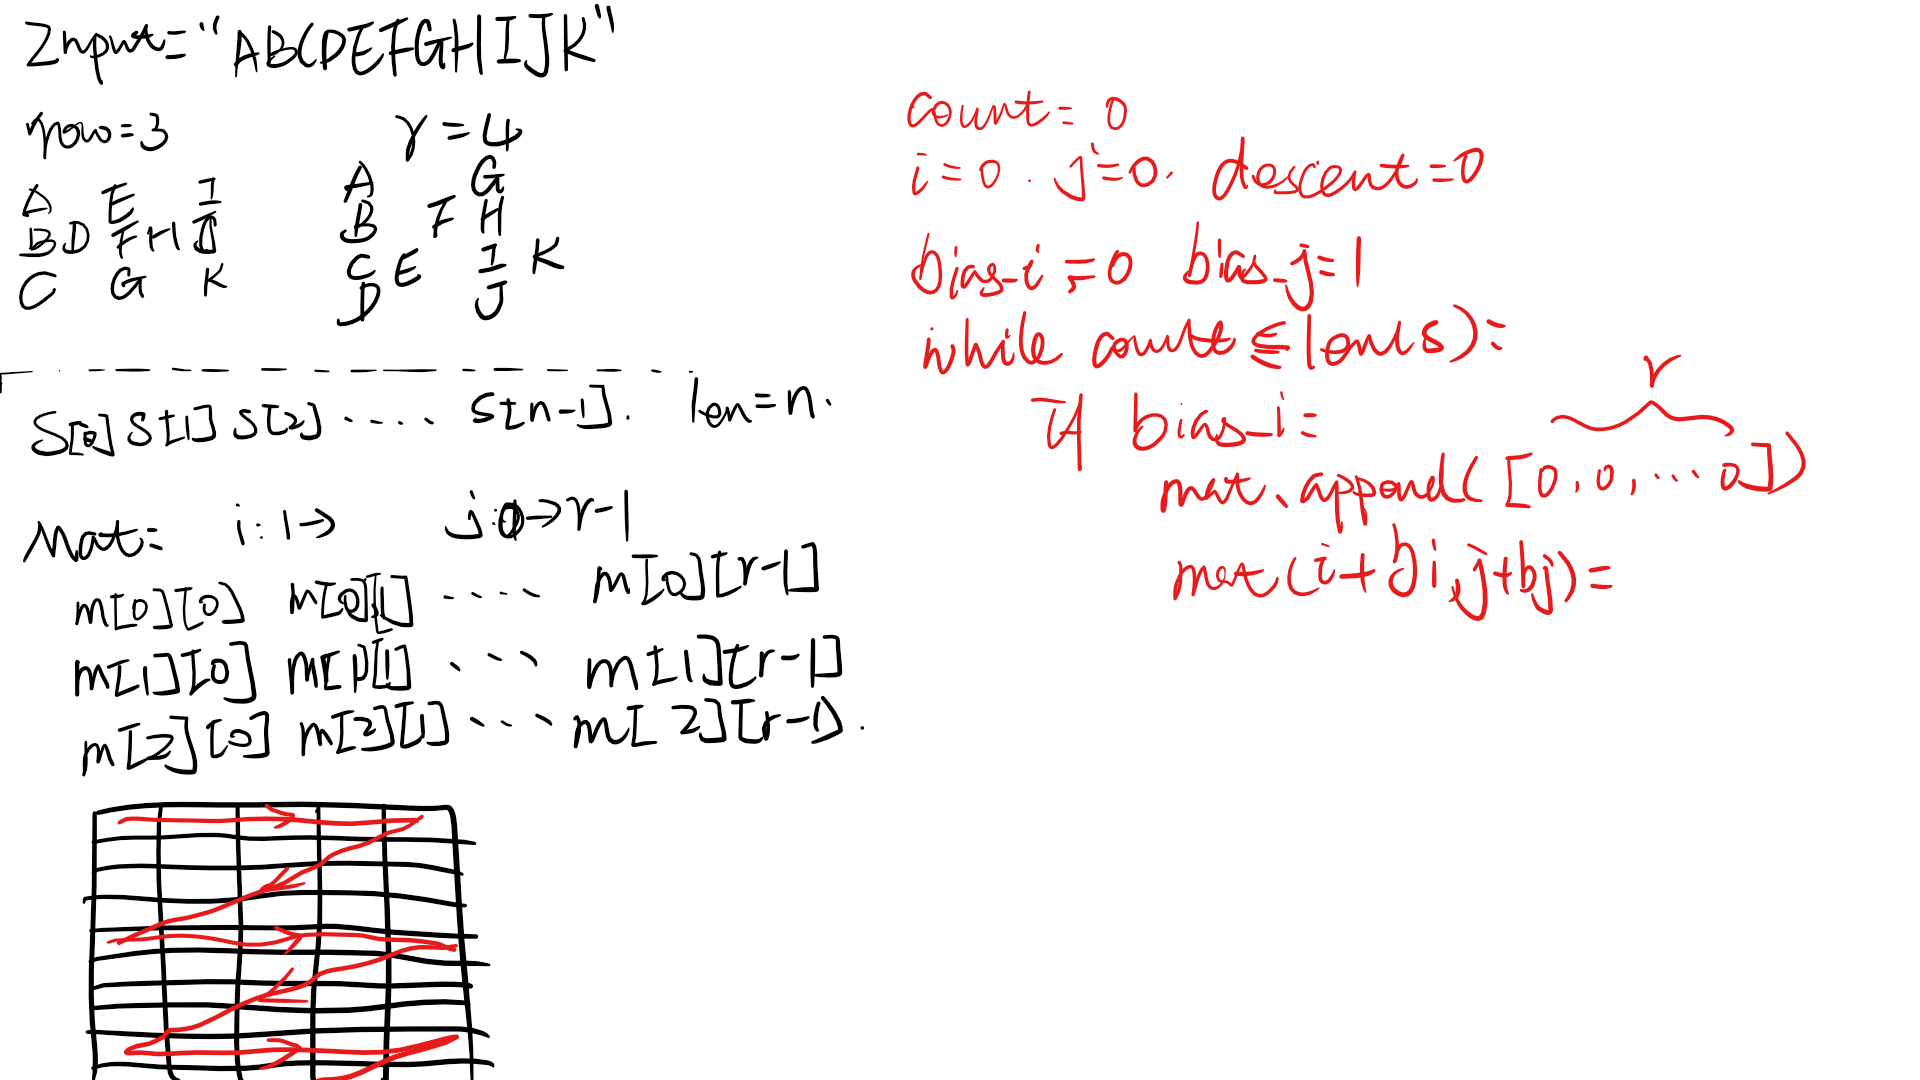 Input="ABCDEFGHIJK"
row=3
r=4
A E I
BD FH J
C G K
A G
B F H
C E I K
D J
S[0] S[1] S[2] ..... S[n-1]. len=n.
Mat: i:1→ j:0→r-1
m[0][0] m[0][1] ..... m[0][r-1]
m[1][0] m[1][1] .... m[1][r-1]
m[2][0] m[2][1] .... m[2][r-1].
count=0
i=0. j=0. descent=0
bias_i=0 bias_j=1
while count≤len(s):
r
If bias_i=
mat.append([0,0,...0])
mat(i+bi,j+bj)=